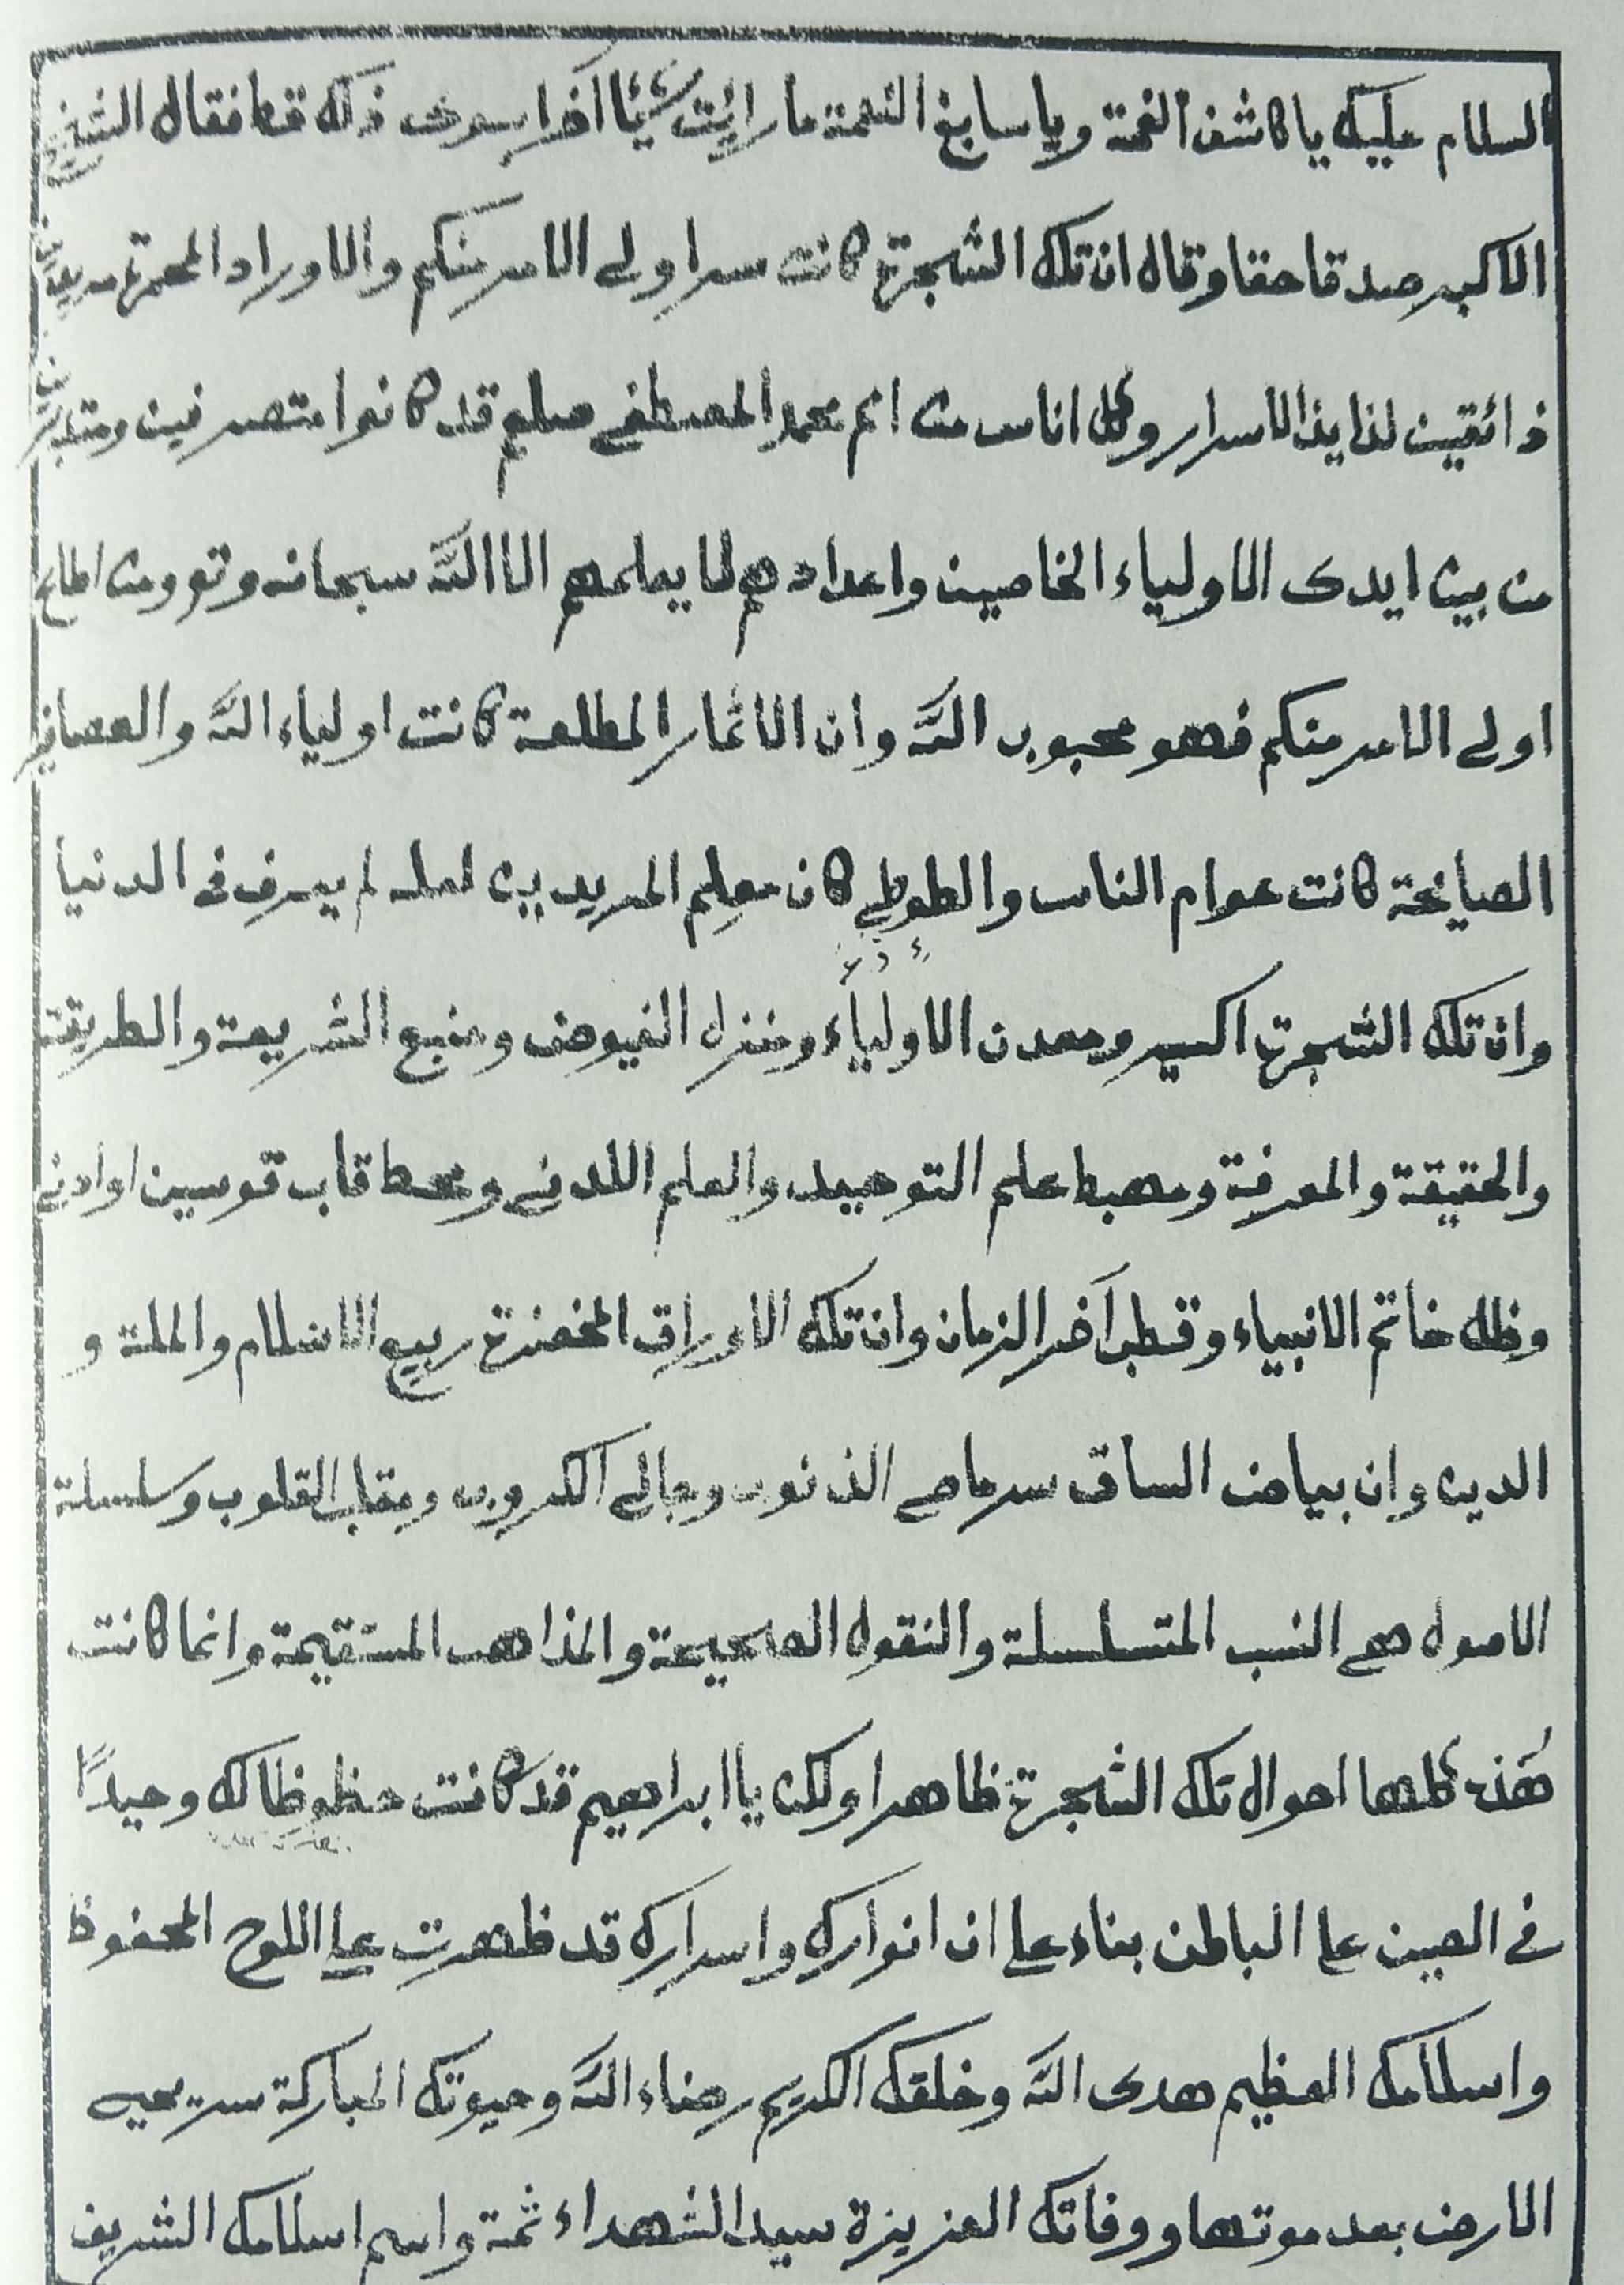 السلام عليك يا كاشف الغمة ويا سابغ النعمة ما رايت شيئا آخرا سوى ذلك قط فقال الشيخ
الاكبر صدقا حقا وقال ان تلك الشجرة كانت سر اولى الامر منكم والاوراد المحمرة مريدين
ذائقين لذايذ الاسرار وكل اناس من امم محمد المصطفى صلعم قد كانوا متصرفين
من بين ايدى الاولياء الخاصين واعدادهم لا يعلمهم الا الله سبحانه وتع ومن اطاع
اولى الامر منكم فهو محبوب الله وان الاثمار المطلعة كانت اولياء الله والعصافير
الصايحة كانت عوام الناس والطوطى كان معلم المريدين لعله لم يعرف فى الدنيا
وان تلك الشجرة اكسير ومعدن الاولياء ومنزل الفيوض ومنبع الشريعة والطريقت
والحقيقة والمعرفة ومهبط علم التوحيد والعلم اللدنى ومحط قاب قوسين او ادنى
وظل خاتم الانبياء وقطب آخر الزمان وان تلك الاوراق المخضرة ربيع الاسلام والملة و
الدين وان بياض الساق سر ماحى الذنوب وجالى الكروب ومقلب القلوب وسلسلة
الاصول هى النسب المتسلسلة والنقول الصحيحة والمذاهب المستقيمة وانما كانت
هذه كلها احوال تلك الشجرة ظاهرا ولكن يا ابراهيم قد كانت حظوظا لك وحيدًا
فى العين على الباطن بناء على ان انوارك واسرارك قد ظهرت على اللوح المحفوظ
واسلامك العظيم هدى الله وخلقك الكريم رضاء الله وحيوتك المباركة سر يحيى
الارض بعد موتها ووفاتك العزيزة سيد الشهداء ثمة واسم اسلامك الشريف